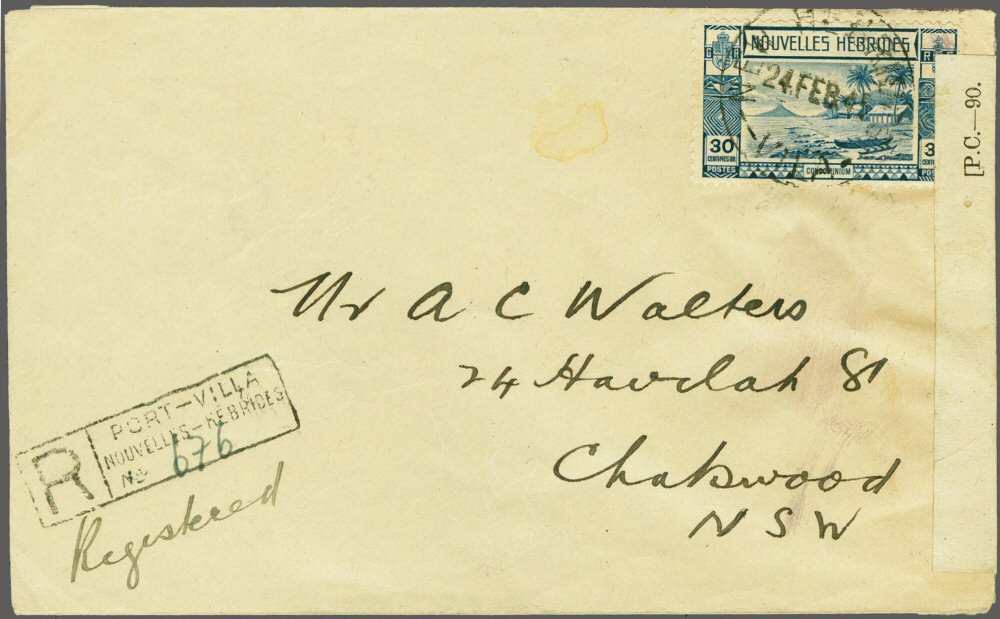 NOUVELLES HÉBRIDES
G R
R
24 FEB 4
VILA
30
CENTIMES OR
POSTES
CONDOMINIUM
[P.C.—90.
Mr A C Walters
24 Havilah St
Chatswood
N S W
R
PORT-VILLA
NOUVELLES-HEBRIDES
No 676
Registered